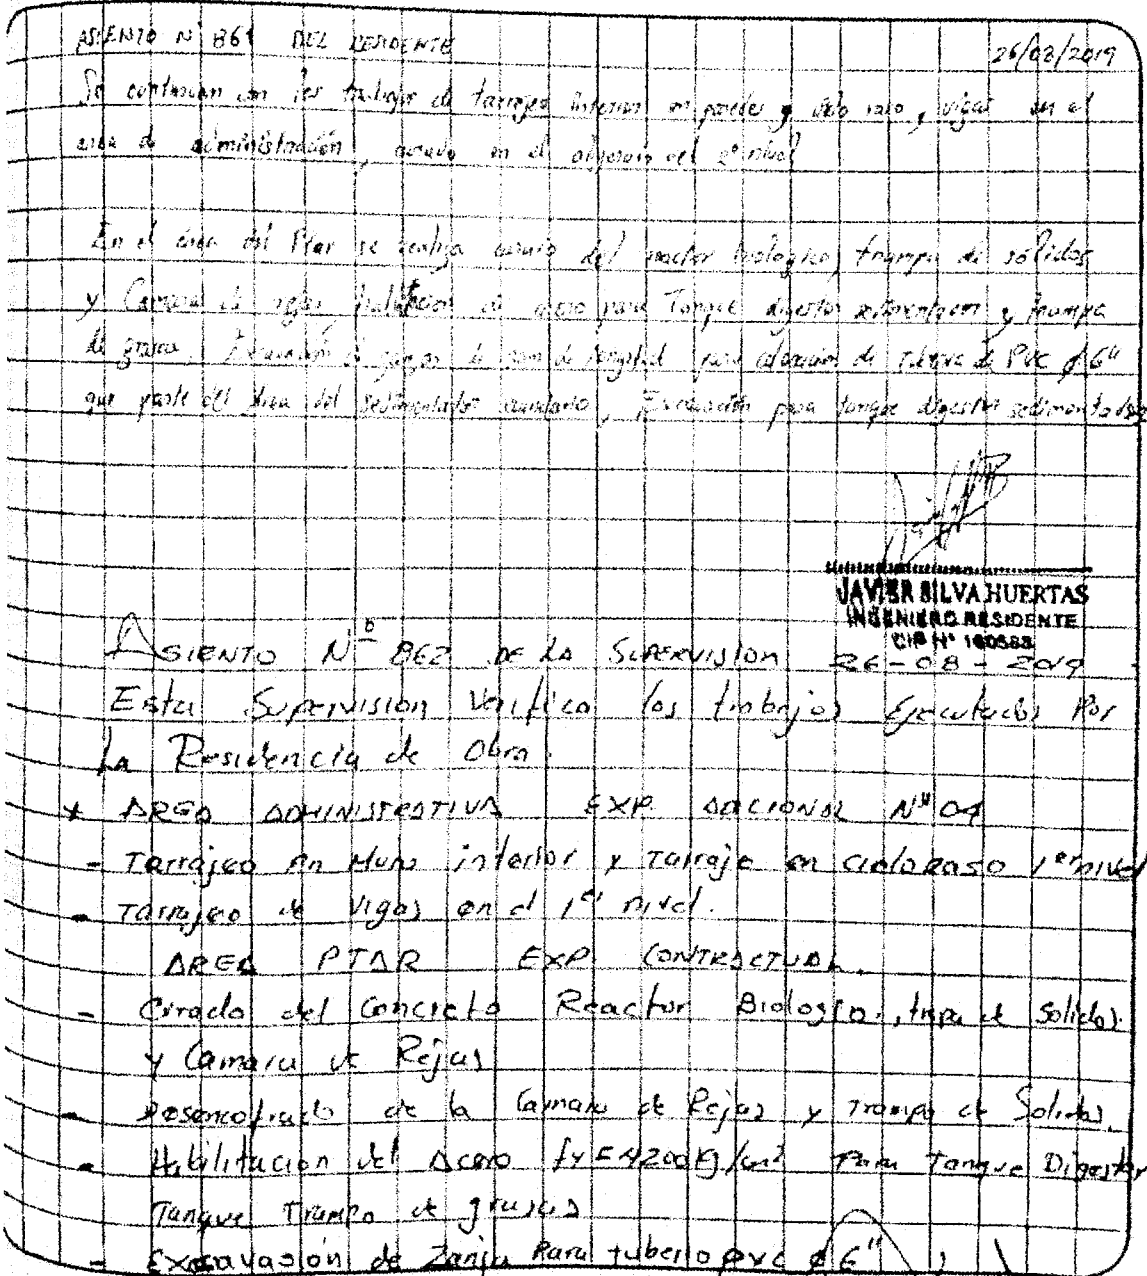 ASIENTO Nº 861 DEL RESIDENTE 26/08/2019
Se continuan con los trabajos de tarrajeo interior en paredes y cielo raso, vigas en el
area de administración, curado en el del 2º nivel
En el área del Ptar se realiza curado del reactor biologico, trampa de sólidos
y Camara de rejas, habilitacion de acero para Tanque digestor sedimentador y trampa
de grasa, Excavación de de longitud para colocación de tuberia de PVC ø 6"
que parte del área del sedimentador secundario, Excavación para tanque digestor sedimentador
JAVIER SILVA HUERTAS
INGENIERO RESIDENTE
CIP Nº 160588
ASIENTO Nº 862 DE LA SUPERVISION 26-08-2019
Esta Supervision Verifica los trabajos Ejecutados Por
La Residencia de Obra.
* AREA ADMINISTRATIVA EXP. ADICIONAL Nº 04
- Tarrajeo en Muro interior y Tarrajeo en cieloraso 1er nivel
- Tarrajeo de Vigas en el 1er nivel.
AREA PTAR EXP. CONTRACTUAL.
- Curado del Concreto Reactor Biologico, trapa de Solidos
y Camara de Rejas
- Desencofrado de la Camara de Rejas y Trampa de Solidos.
- Habilitacion del Acero fy=4200Kg/cm² Para Tanque Digestor
Tanque Trampa de grasas
- Excavasión de Zanja Para tuberia pvc ø 6"